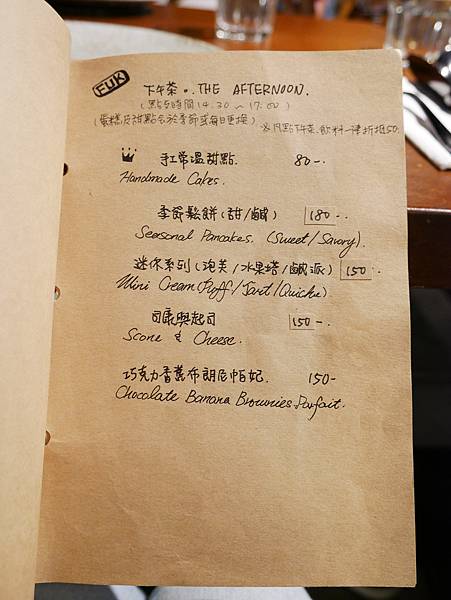 FUK
下午茶 . . THE AFTERNOON.
(點巧時間 14.30 ~ 17.00)
(蛋糕及甜點會於季節或每日更換)
※凡點下午茶.飲料一律折抵50.
手工常溫甜點. 80-.
Handmade Cakes.
季節鬆餅(甜/鹹) 180-.
Seasonal Pancakes. (Sweet/Savory).
迷你系列(泡芙/水果塔/鹹派) 150-.
Mini Cream Puff/Tart/Quiche)
司康與起司 150-.
Scone & Cheese.
巧克力香蕉布朗尼帕妃. 150-
Chocolate Banana Brownies Parfait.